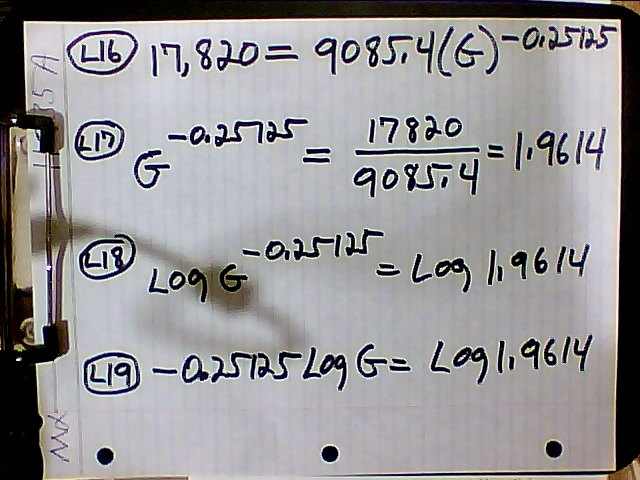 L16 17,820 = 9085.4(G)^-0.25125
L17 G^-0.25125 = 17820/9085.4 = 1.9614
L18 Log G^-0.25125 = Log 1.9614
L19 -0.25125 Log G = Log 1.9614